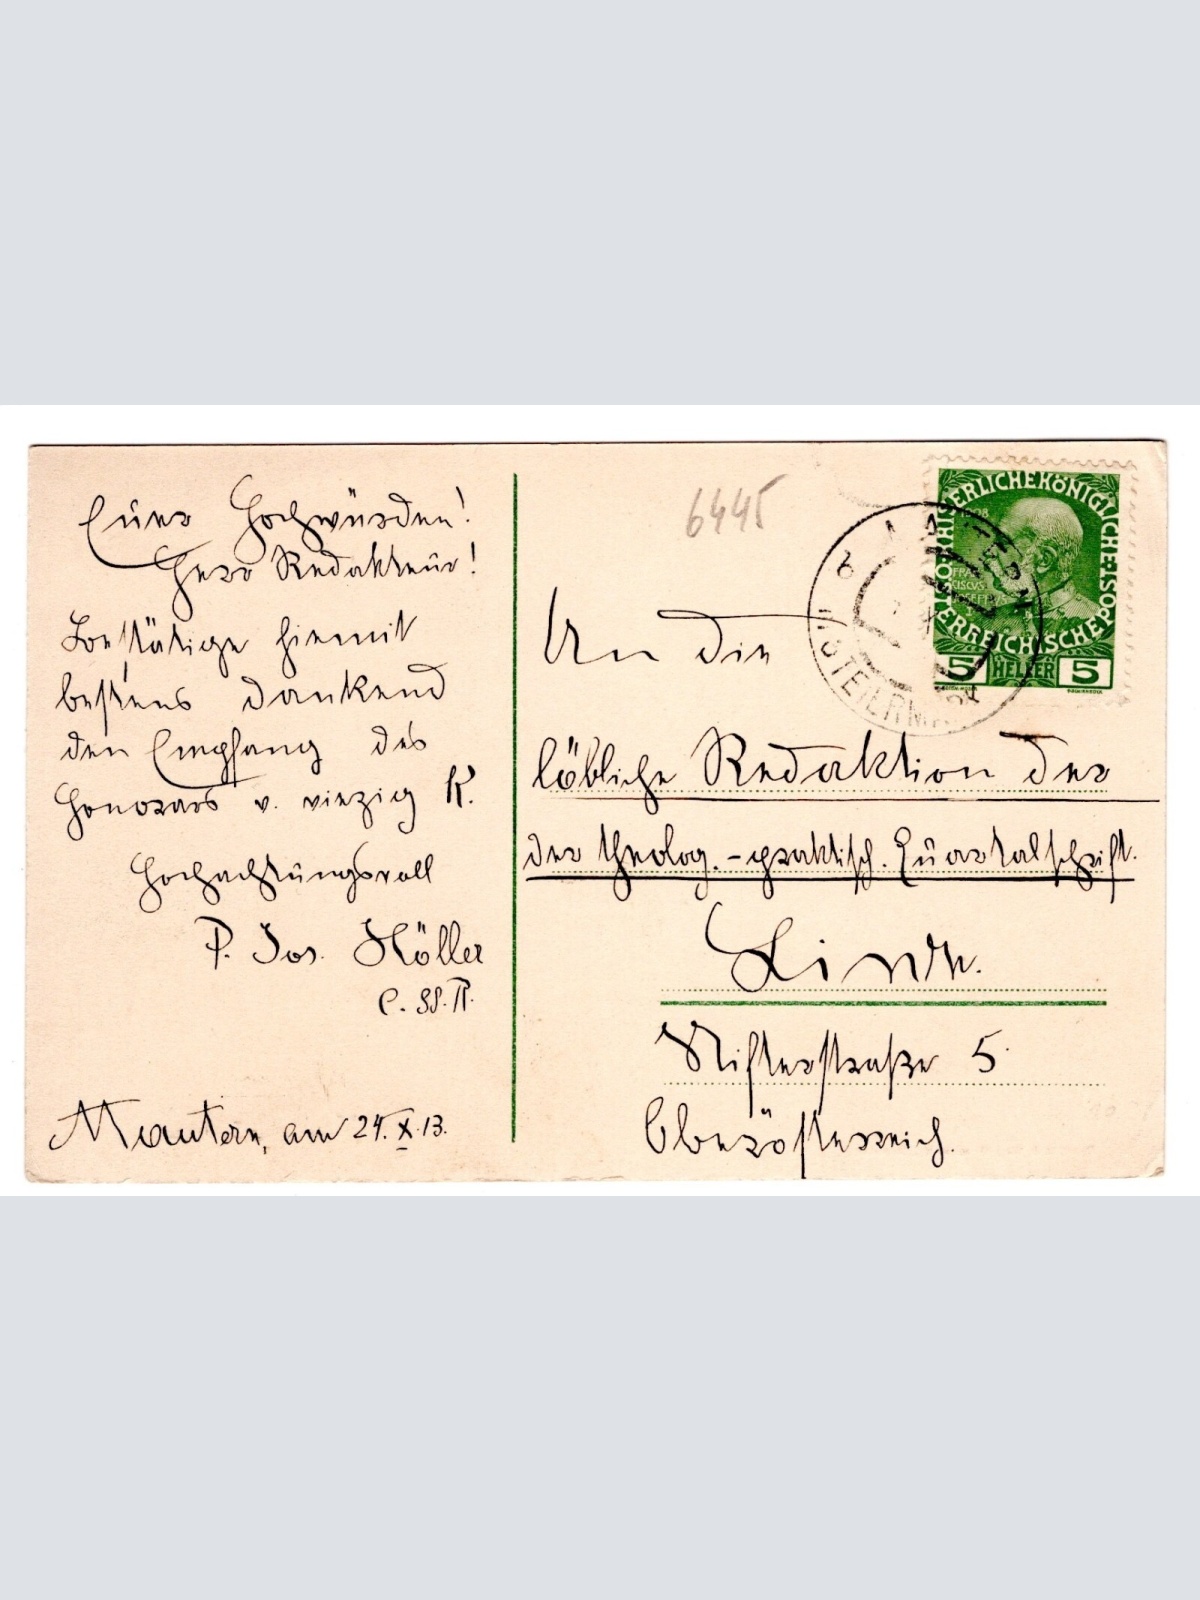 Euer Hochwürden!
Herr Redakteur!
Bestätige hiemit
bestens dankend
den Empfang des
Honorars v. vierzig K.
Hochachtungsvoll
P. Jos. Höller
C. SS. R.
Mautern, am 24. X. 13.
6445
KAISERLICHEKÖNIGLICHE
ÖSTERREICHISCHEPOST
1908
FRAN
CISCVS
IOSEPHVS
5 HELLER 5
An die
löbliche Redaktion der
der theolog.-praktisch. Quartalschrift.
Linz.
Stifterstraße 5
Oberösterreich.